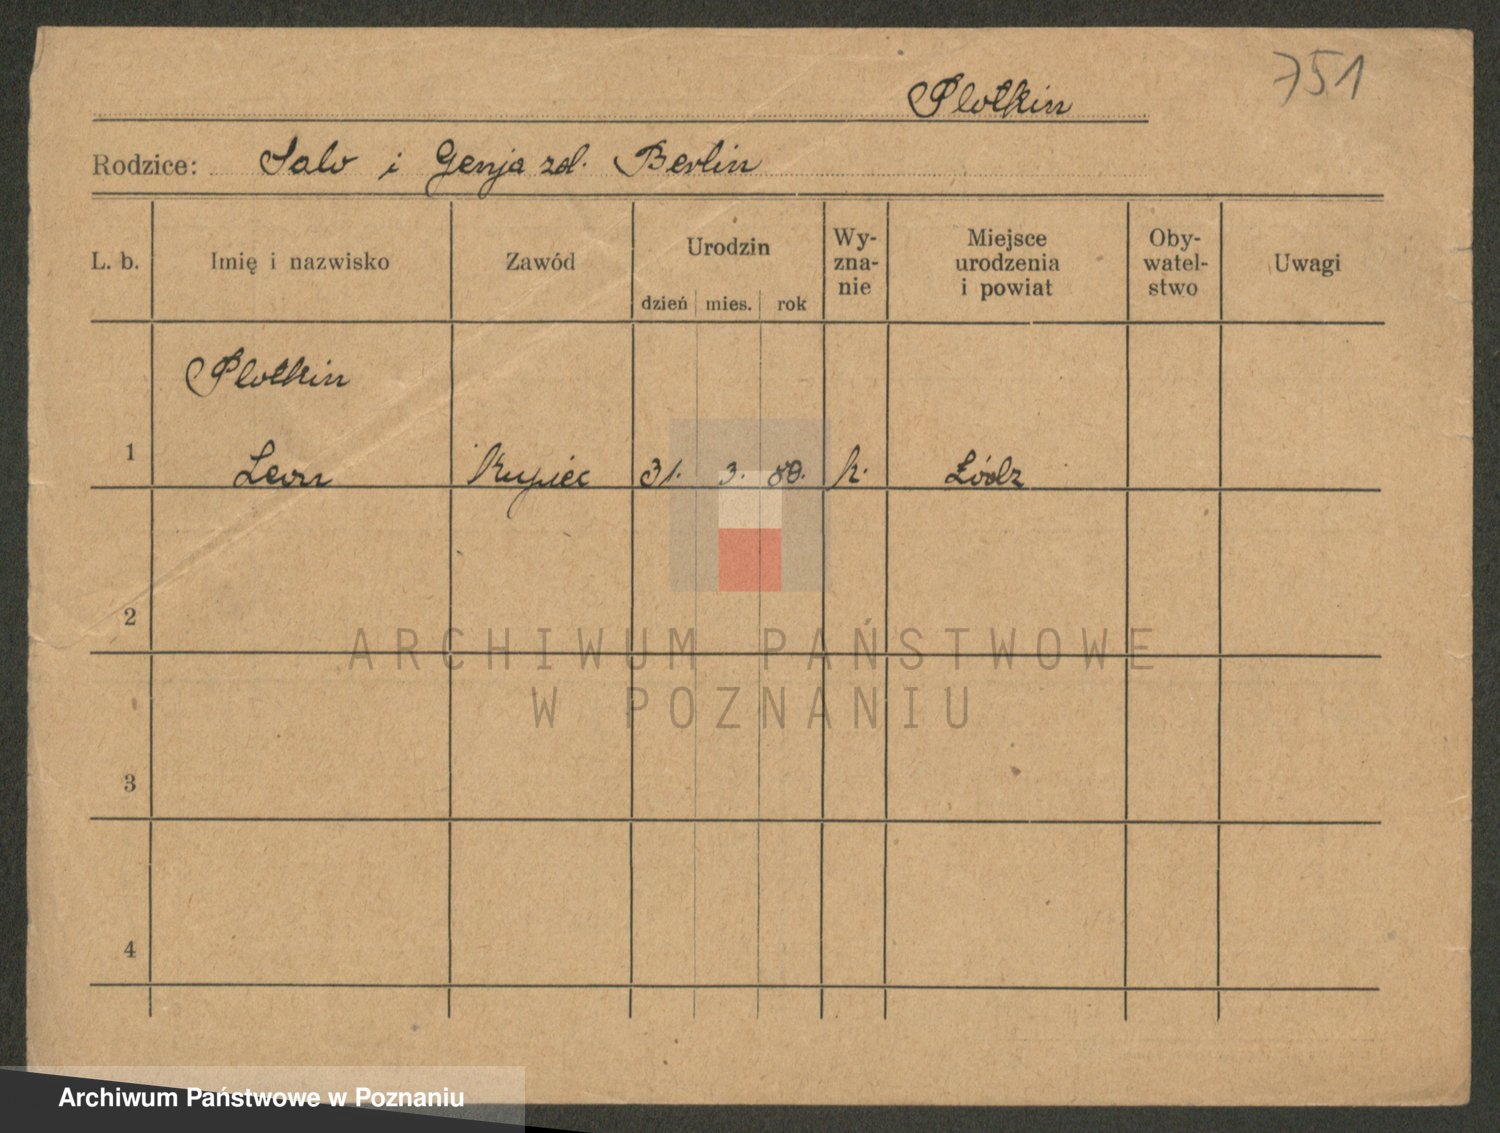 751
Plotkin
Rodzice: Salo i Genja zd. Berlin
L. b.
Imię i nazwisko
Zawód
Urodzin
dzień mies. rok
Wy-
zna-
nie
Miejsce
urodzenia
i powiat
Oby-
watel-
stwo
Uwagi
Plotkin
1 Leon Kupiec 31. 3. 89. k. Łódz
2
3
4
ARCHIWUM PAŃSTWOWE
W POZNANIU
Archiwum Państwowe w Poznaniu